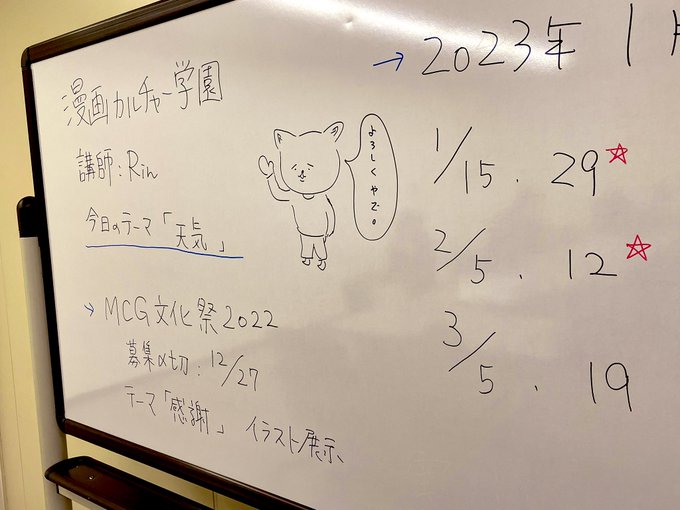 漫画カルチャー学園
講師:Rin
今日のテーマ「天気」
よろしくやで。
→ MCG文化祭2022
募集〆切:12/27
テーマ「感謝」 イラスト展示
→ 2023年 1月
1/15 . 29☆
2/5 . 12☆
3/5 . 19